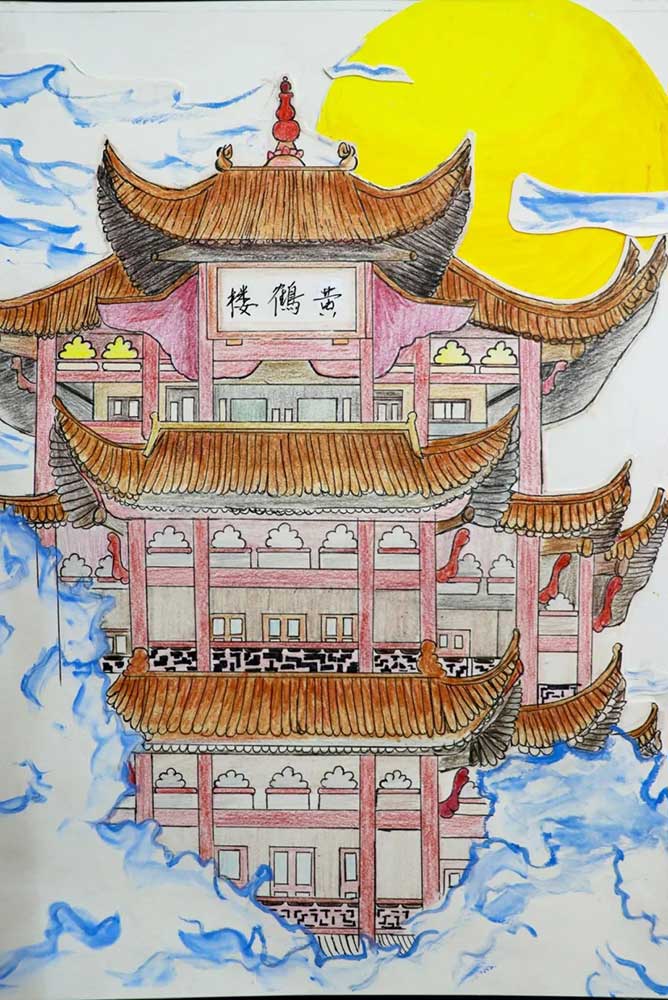 黄鶴楼